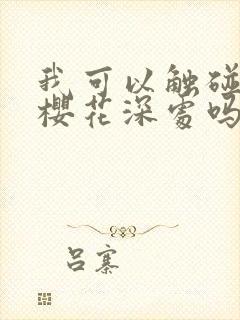 我可以触碰
樱花深处吗
吕寨